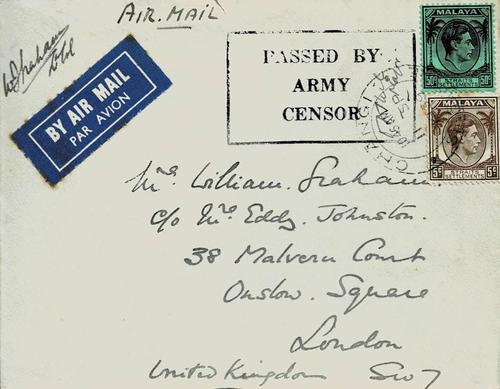 AIR. MAIL
W Graham
BY AIR MAIL
PAR AVION
PASSED BY
ARMY
CENSOR
CHANGI
MALAYA
50c 50c
STRAITS
SETTLEMENTS
MALAYA
5c 5c
STRAITS
SETTLEMENTS
Mrs. William. Graham
c/o Mrs Eddy. Johnston.
38 Malvern Court
Onslow. Square
London
United Kingdom SW7